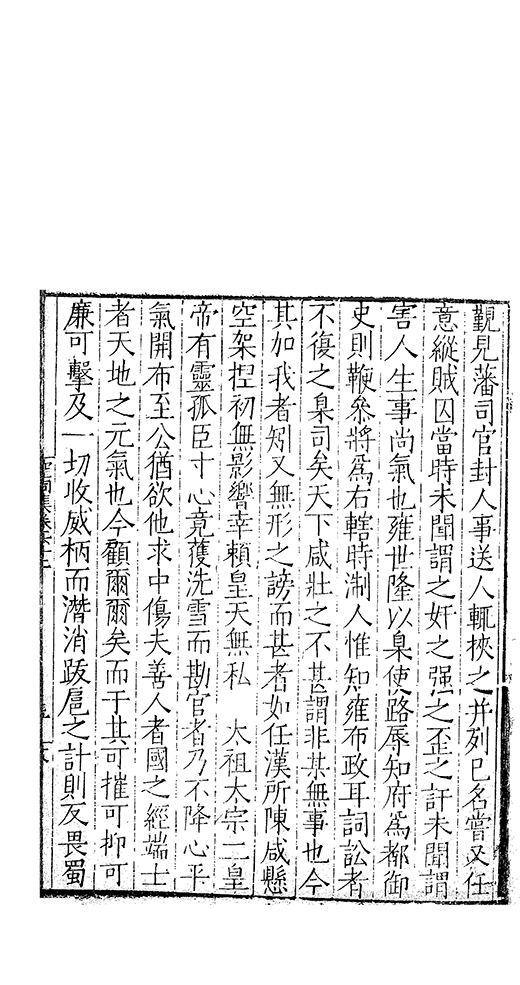 覲見藩司官封人事送人輒挾之并列已名嘗又任
意縱賊囚當時未聞謂之奸之强之歪之訐未聞謂
害人生事尚氣也雍世隆以臬使路辱知府爲都御
史則鞭叅將爲右轄時淛人惟知雍布政耳詞訟者
不復之臬司矣天下咸壯之不甚謂非某無事也今
其加我者矧又無形之謗而甚者如任漢所陳咸懸
空架捏初無影響幸賴皇天無私 太祖太宗二皇
帝有靈孤臣寸心竟獲洗雪而勘官者乃不降心平
氣開布至公猶欲他求中傷夫善人者國之經端士
者天地之元氣也今顧爾爾矣而于其可摧可抑可
廉可擊及一切收威柄而潛消跋扈之計則反畏蜀